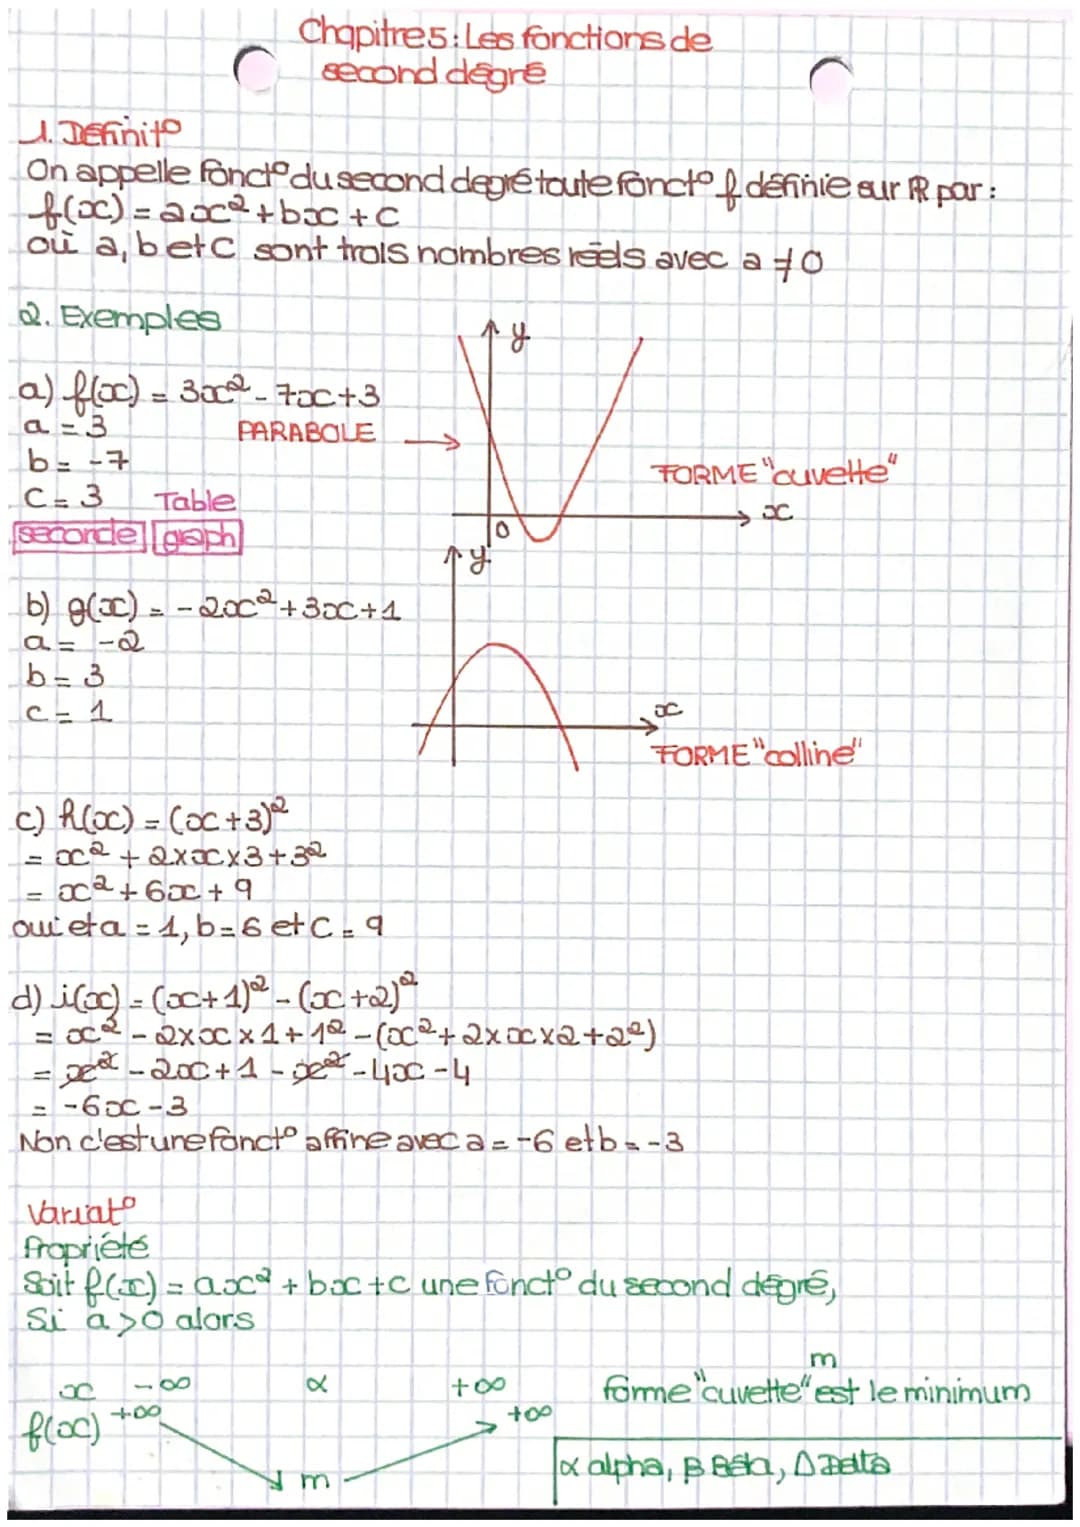 Chapitre 5: Les fonctions de
second degré
1. Définit°
On appelle fonct° du second degré toute fonct° f définie sur ℝ par :
f(x) = ax² + bx + c
où a, b et c sont trois nombres réels avec a ≠ 0
2. Exemples
y
a) f(x) = 3x² - 7x + 3
a = 3
PARABOLE →
b = -7
FORME "cuvette"
c = 3 Table
x
seconde graph
0
y
b) g(x) = -2x² + 3x + 1
a = -2
b = 3
c = 1
x
FORME "colline"
c) h(x) = (x+3)²
= x² + 2×x×3 + 3²
= x² + 6x + 9
oui et a = 1, b = 6 et c = 9
d) i(x) = (x+1)² - (x+2)²
= x² - 2×x×1 + 1² - (x² + 2×x×2 + 2²)
= x² - 2x + 1 - x² - 4x - 4
= -6x - 3
Non c'est une fonct° affine avec a = -6 et b = -3
Variat°
Propriété
Soit f(x) = ax² + bx + c une fonct° du second degré,
Si a > 0 alors
m
x -∞ α +∞ forme "cuvette" est le minimum
f(x) +∞ +∞
m
α alpha, β Bêta, Δ Delta